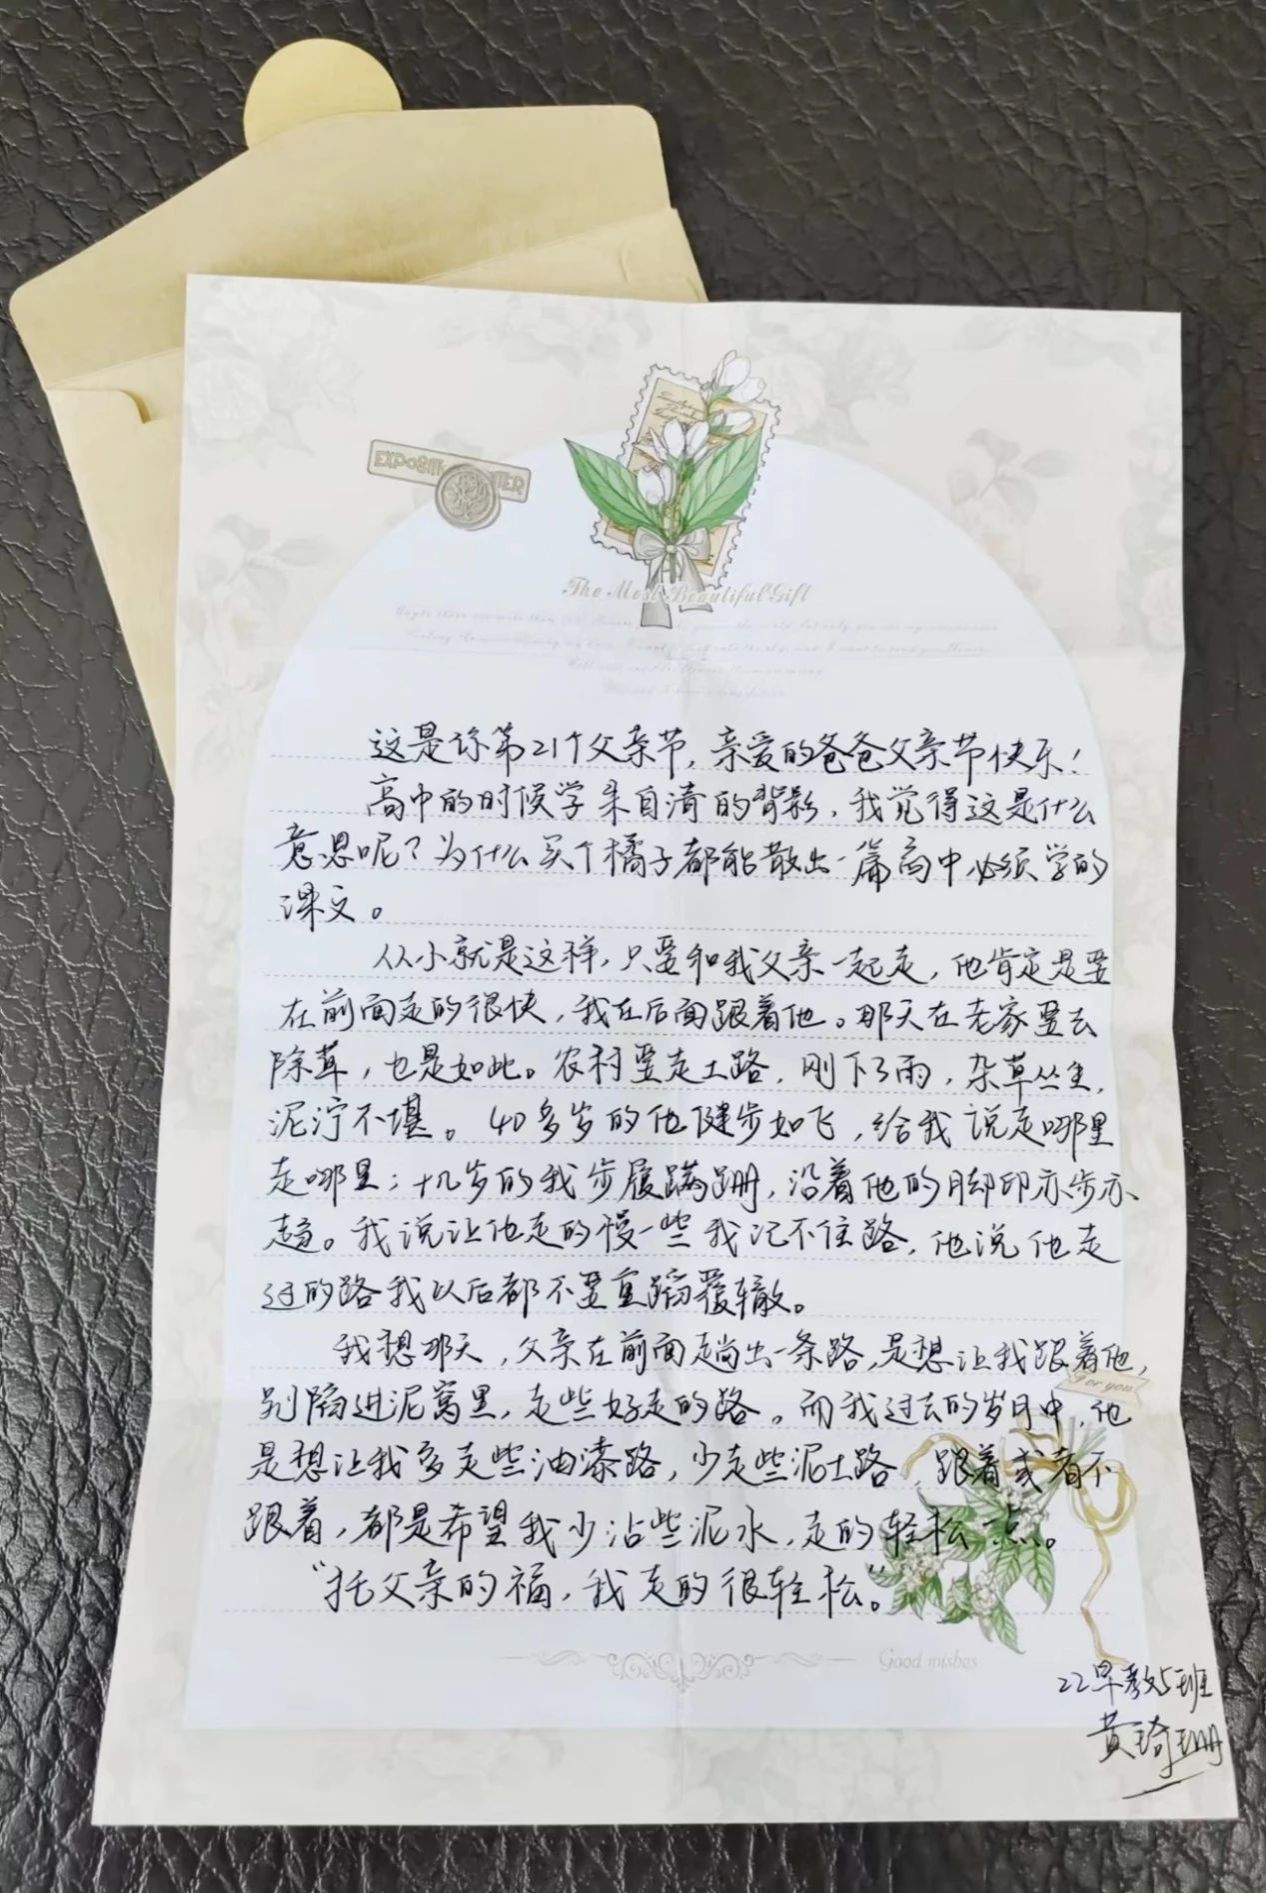 The Most Beautiful Gift
这是你第21个父亲节，亲爱的爸爸父亲节快乐！
高中的时候学朱自清的背影，我觉得这是什么
意思呢？为什么买个橘子都能散出一篇高中必须学的
课文。
从小就是这样，只要和我父亲一起走，他肯定是要
在前面走的很快，我在后面跟着他。那天在老家要去
除茸，也是如此。农村要走土路，刚下了雨，杂草丛生，
泥泞不堪。40多岁的他健步如飞，给我说走哪里
走哪里；十几岁的我步履蹒跚，沿着他的脚印亦步亦
趋。我说让他走的慢一些我记不住路，他说他走
过的路我以后都不要重蹈覆辙。
我想那天，父亲在前面趟出一条路，是想让我跟着他，
别陷进泥窝里，走些好走的路。而我过去的岁月中，他
For you
是想让我多走些油漆路，少走些泥土路，跟着或者不
跟着，都是希望我少沾些泥水，走的轻松一点。
“托父亲的福，我走的很轻松。”
Good wishes
22早教5班
黄琦珊